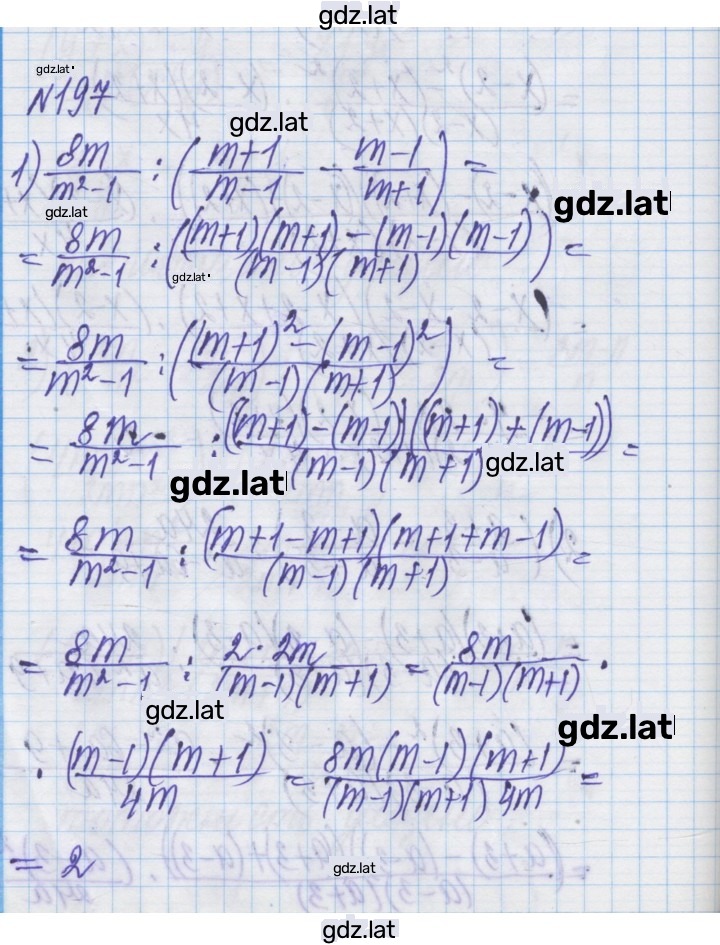 gdz.lat
gdz.lat
№197
gdz.lat
1) 8m/(m²-1) : ((m+1)/(m-1) - (m-1)/(m+1)) =
gdz.lat
gdz.lat
= 8m/(m²-1) : (((m+1)(m+1)-(m-1)(m-1))/((m-1)(m+1))) =
gdz.lat
= 8m/(m²-1) : (((m+1)²-(m-1)²)/((m-1)(m+1))) =
= 8m/(m²-1) : ((m+1)-(m-1))((m+1)+(m-1))/((m-1)(m+1)) =
gdz.lat
gdz.lat
= 8m/(m²-1) : (m+1-m+1)(m+1+m-1)/((m-1)(m+1)) =
= 8m/(m²-1) : 2·2m/((m-1)(m+1)) = 8m/((m-1)(m+1)) ·
gdz.lat
gdz.lat
· (m-1)(m+1)/4m = 8m(m-1)(m+1)/((m-1)(m+1) 4m) =
= 2
gdz.lat
gdz.lat